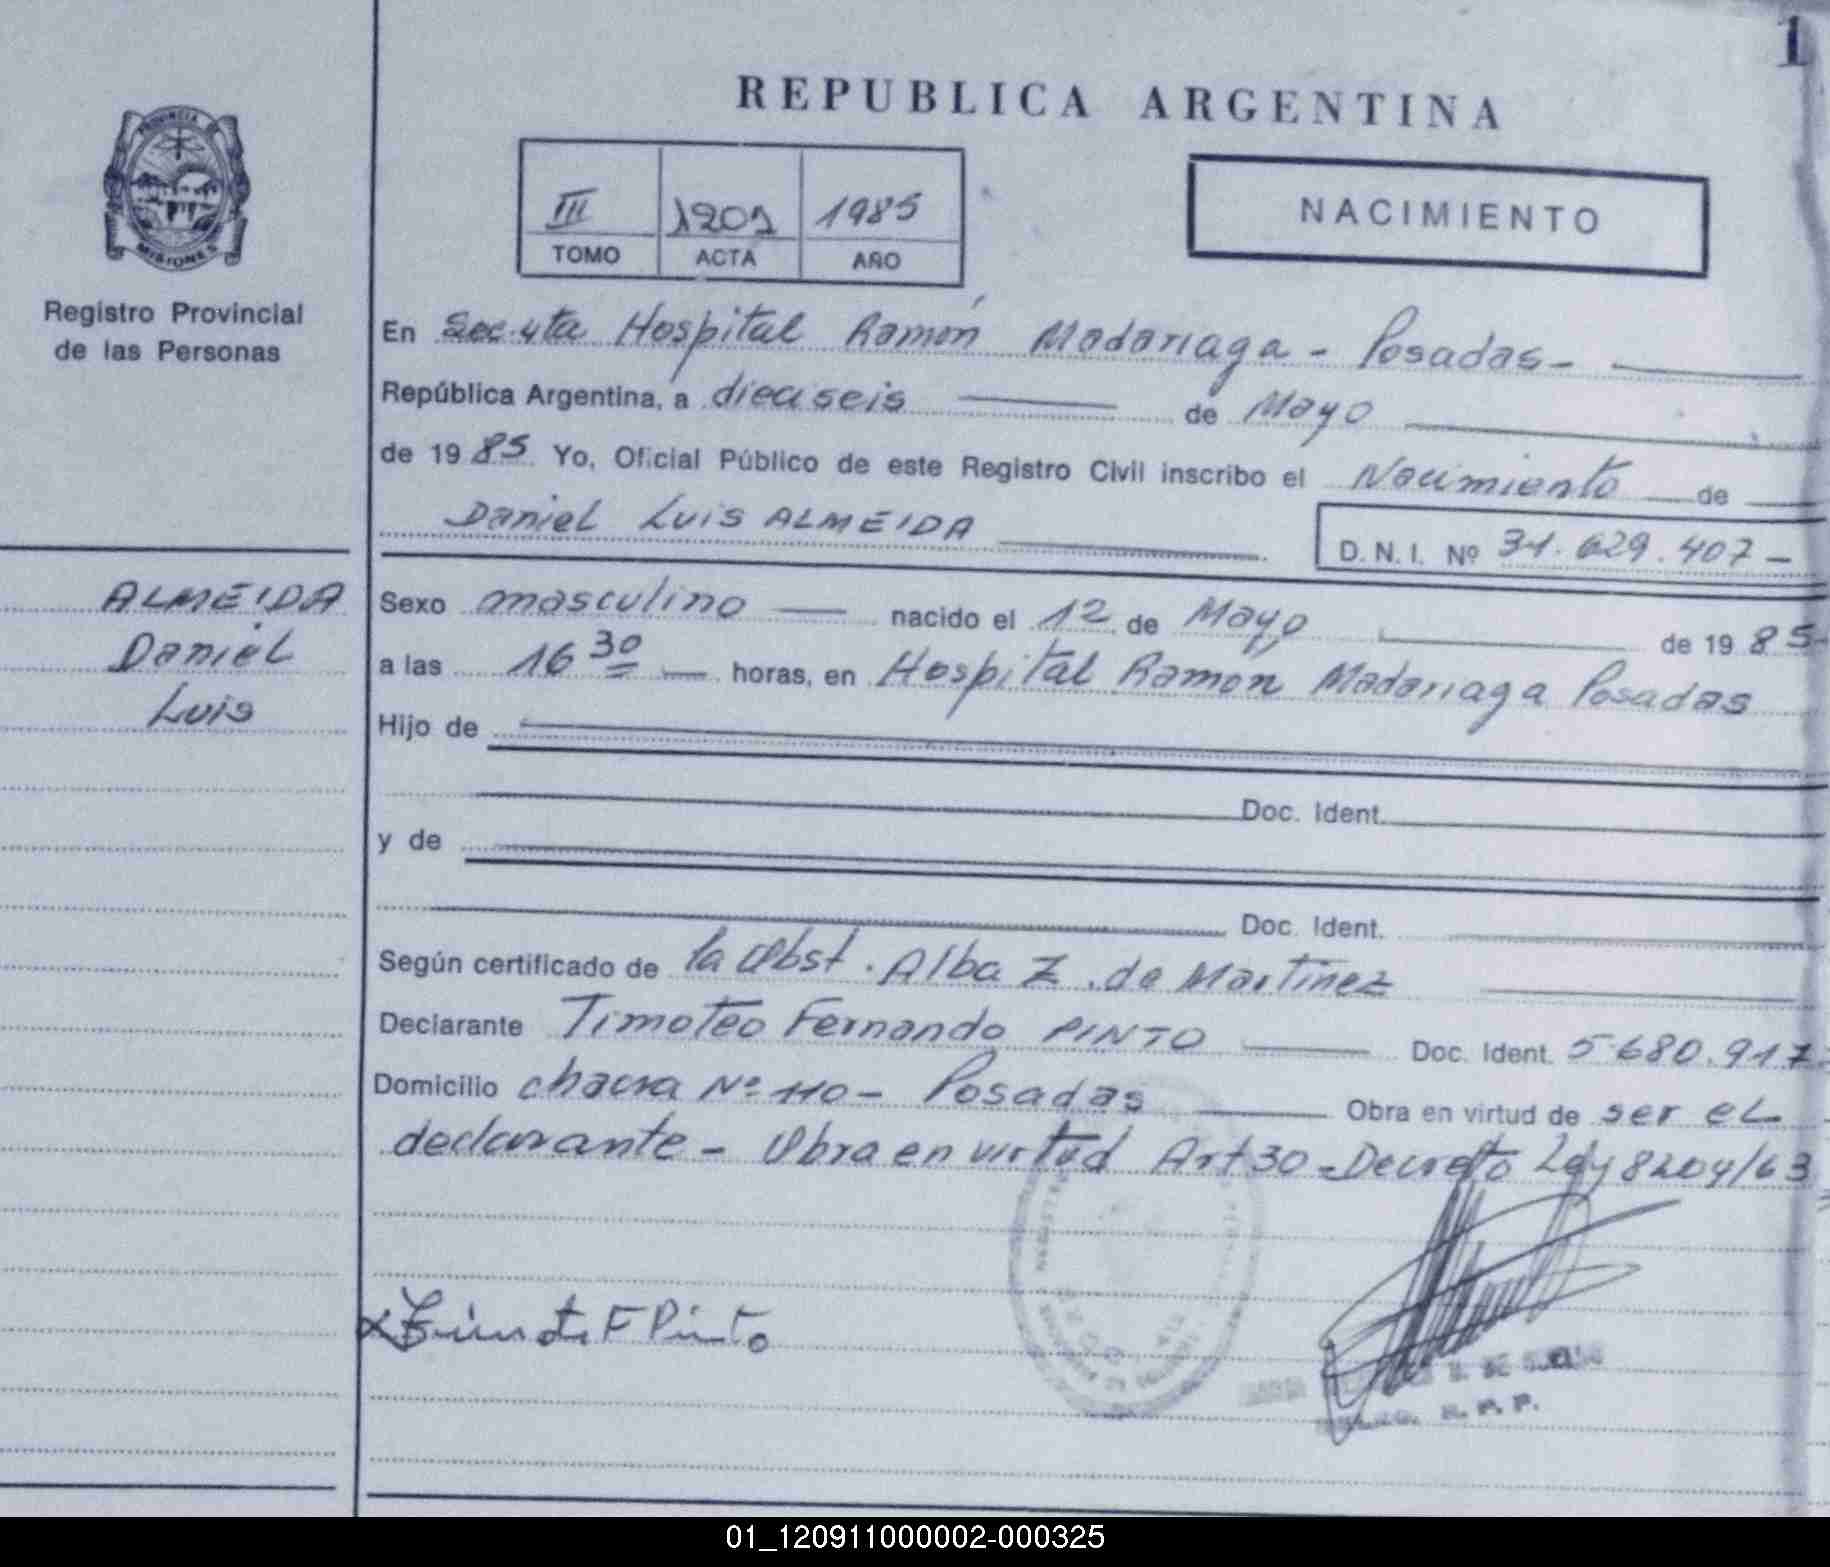 1
REPUBLICA ARGENTINA
PROVINCIA DE
MISIONES
Registro Provincial
de las Personas
III 1201 1985
TOMO ACTA AÑO
NACIMIENTO
En Sec. 4ta Hospital Ramón Madariaga - Posadas -
República Argentina, a dieciseis de Mayo
de 1985 Yo, Oficial Público de este Registro Civil inscribo el Nacimiento de
Daniel Luis ALMEIDA D.N.I. Nº 31.629.407 -
ALMEIDA
Daniel
Luis
Sexo masculino nacido el 12 de Mayo de 1985-
a las 16 30 horas, en Hospital Ramón Madariaga Posadas
Hijo de
Doc. Ident.
y de
Doc. Ident.
Según certificado de la Obst. Alba Z. de Martinez
Declarante Timoteo Fernando PINTO Doc. Ident. 5.680.917.
Domicilio chacra Nº 110 - Posadas Obra en virtud de ser el
declarante - Obra en virtud Art 30 - Decreto Ley 8204/63
F Pinto
R. P. P.
01_120911000002-000325